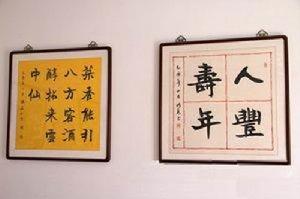 菜香能引
八方客酒
醇招来雲
中仙
豐年
人壽